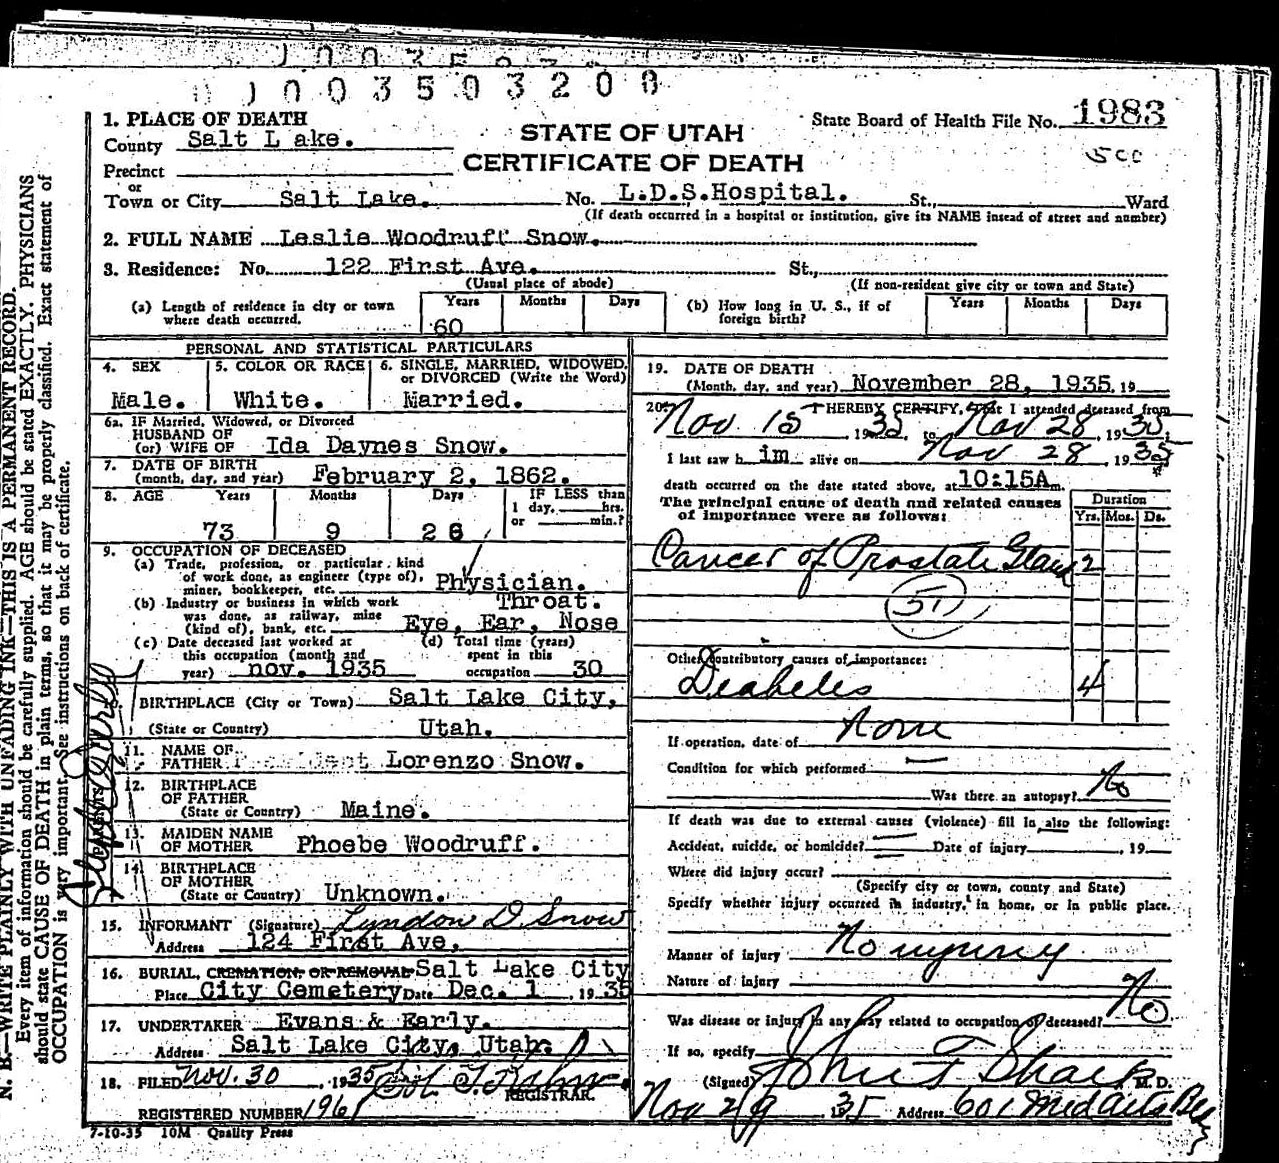 J 0 0 3 5 0 3 2 0 0
1. PLACE OF DEATH
STATE OF UTAH
CERTIFICATE OF DEATH
State Board of Health File No. 1983
County Salt L ake.
Precinct
or
Town or City Salt Lake. No. L.D.S.Hospital. St., Ward
(If death occurred in a hospital or institution, give its NAME instead of street and number)
2. FULL NAME Leslie Woodruff Snow.
3. Residence: No. 122 First Ave. St.,
(Usual place of abode) (If non-resident give city or town and State)
(a) Length of residence in city or town where death occurred. Years 60 Months Days
(b) How long in U. S., if of foreign birth? Years Months Days
PERSONAL AND STATISTICAL PARTICULARS
4. SEX Male.
5. COLOR OR RACE White.
6. SINGLE, MARRIED, WIDOWED, or DIVORCED (Write the Word) Married.
6a. IF Married, Widowed, or Divorced
HUSBAND OF
(or) WIFE OF Ida Daynes Snow.
7. DATE OF BIRTH
(month, day, and year) February 2, 1862.
8. AGE Years 73 Months 9 Days 26 IF LESS than 1 day, hrs. or min.?
9. OCCUPATION OF DECEASED
(a) Trade, profession, or particular kind of work done, as engineer (type of), miner, bookkeeper, etc. Physician.
(b) Industry or business in which work was done, as railway, mine (kind of), bank, etc. Throat. Eye, Ear, Nose
(c) Date deceased last worked at this occupation (month and year) nov. 1935
(d) Total time (years) spent in this occupation 30
BIRTHPLACE (City or Town) Salt Lake City,
(State or Country) Utah.
11. NAME OF FATHER Lorenzo Snow.
12. BIRTHPLACE OF FATHER
(State or Country) Maine.
13. MAIDEN NAME OF MOTHER Phoebe Woodruff.
14. BIRTHPLACE OF MOTHER
(State or Country) Unknown.
15. INFORMANT (Signature) Lyndon D. Snow
Address 124 First Ave.
16. BURIAL, CREMATION, OR REMOVAL Salt Lake City
Place City Cemetery Date Dec. 1, 1935
17. UNDERTAKER Evans & Early.
Address Salt Lake City, Utah.
18. FILED Nov. 30, 1935
REGISTRAR.
REGISTERED NUMBER 1961
7-10-35 10M Quality Press
19. DATE OF DEATH
(Month, day, and year) November 28, 1935. 19
20. I HEREBY CERTIFY, That I attended deceased from
Nov 15, 1935, to Nov 28, 1935,
I last saw h im alive on Nov 28, 1935
death occurred on the date stated above, at 10:15A m.
The principal cause of death and related causes of importance were as follows:
Duration
Yrs. Mos. Ds.
Cancer of Prostate Gland 2
51
Other contributory causes of importance:
Diabetes 4
If operation, date of None
Condition for which performed
Was there an autopsy? No
If death was due to external causes (violence) fill in also the following:
Accident, suicide, or homicide? Date of injury , 19
Where did injury occur?
(Specify city or town, county and State)
Specify whether injury occurred in industry, in home, or in public place.
Manner of injury No injury
Nature of injury
Was disease or injury in any way related to occupation of deceased? No
If so, specify
(Signed) John F Sharp M. D.
Nov 29 1935 Address 601 Med Arts Bldg
N. B.—WRITE PLAINLY WITH UNFADING INK—THIS IS A PERMANENT RECORD.
Every item of information should be carefully supplied. AGE should be stated EXACTLY. PHYSICIANS
should state CAUSE OF DEATH in plain terms, so that it may be properly classified. Exact statement of
OCCUPATION is very important. See instructions on back of certificate.